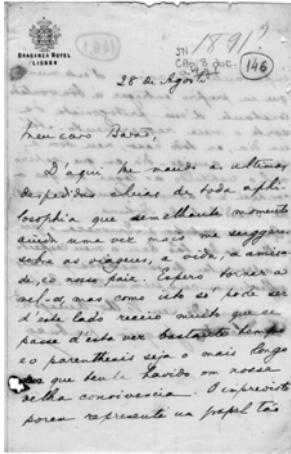 BRAGANZA HOTEL
LISBON
1891?
146
28 de Agosto
Meu caro Barão,
D'aqui lhe mando as ultimas
despedidas cheias de toda a phi-
losophia que semelhante momento
ainda uma vez mais me suggere
sobre as viagens, a vida, a amisa-
de, e o nosso paiz. Espero tornar a
vel-o, mas como isto só pode ser
d'este lado receio muito que se
passe d'esta vez bastante tempo
e o parenthesis seja o mais longo
que tenha havido em nossa
velha convivencia. O imprevisto
porem representa um papel tão